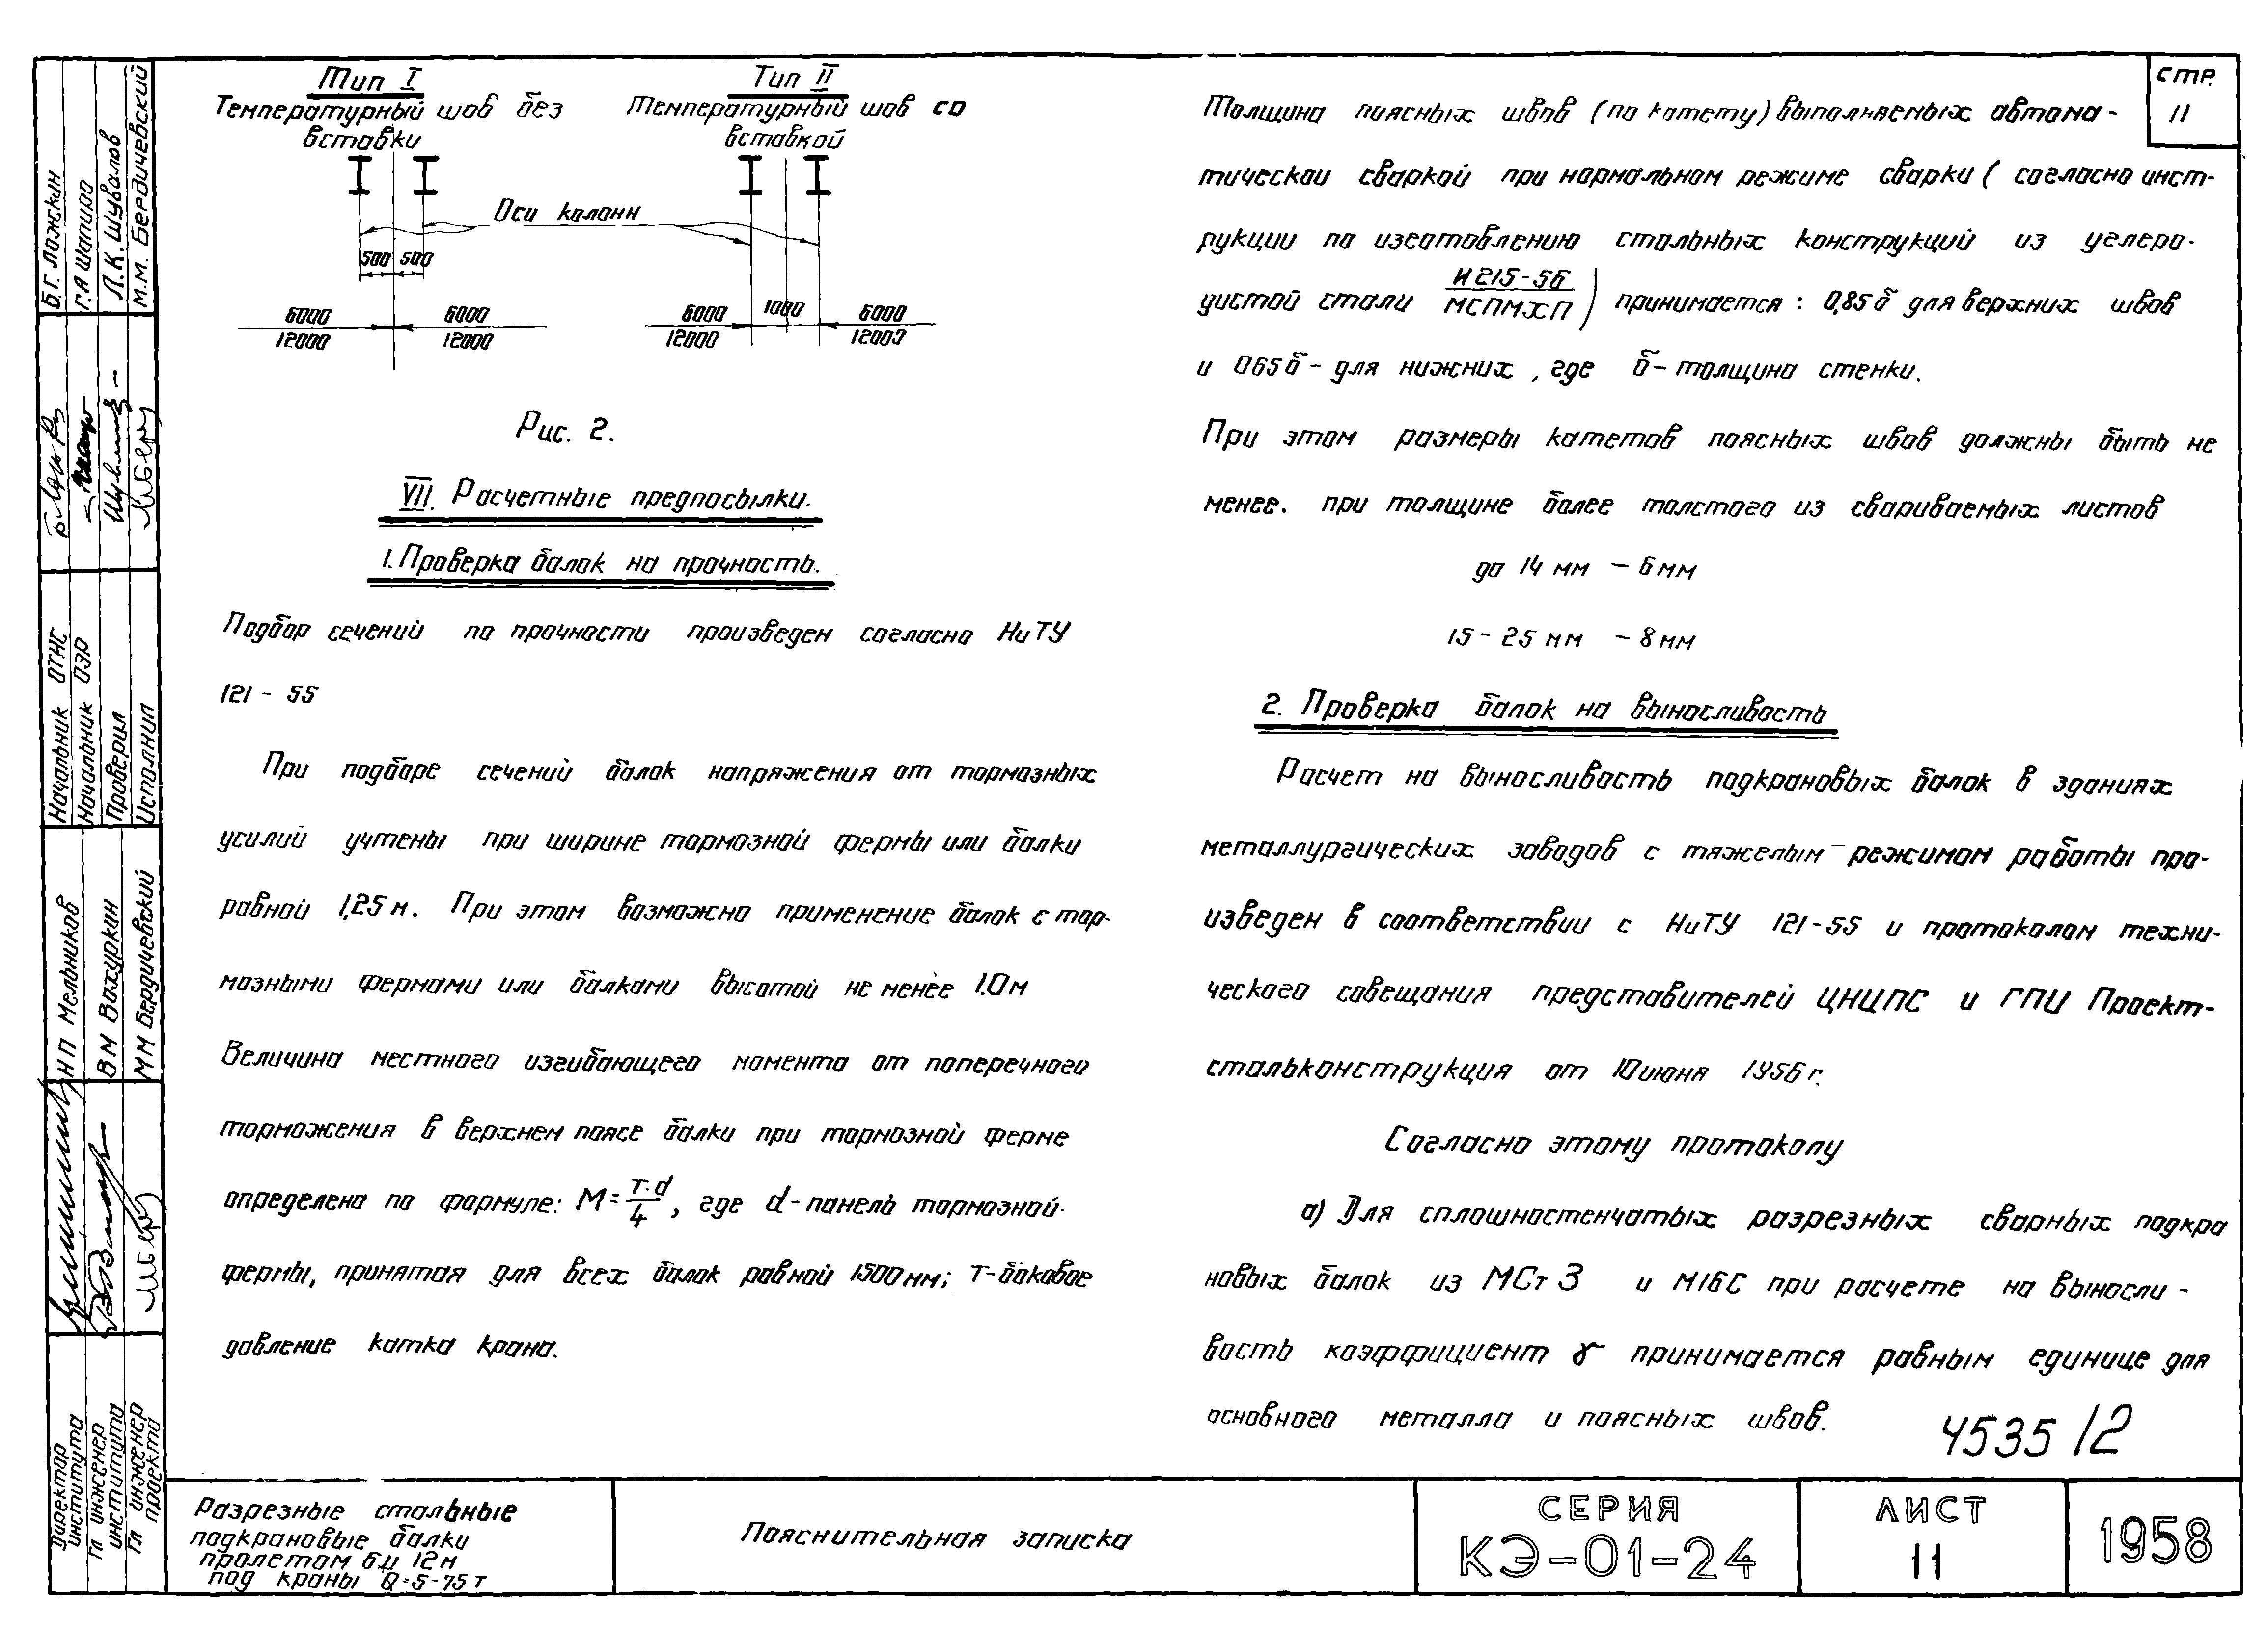 Тип I
Температурный шов без
вставки
Тип II
Температурный шов со
вставкой
Оси колонн
500 500
6000 6000
12000 12000
6000 1000 6000
12000 12000
Рис. 2.
VII. Расчетные предпосылки.
1. Проверка балок на прочность.
Подбор сечений по прочности произведен согласно НиТУ
121-55
При подборе сечений балок напряжения от тормозных
усилий учтены при ширине тормозной фермы или балки
равной 1,25 м. При этом возможно применение балок с тор-
мозными фермами или балками высотой не менее 1.0 м
Величина местного изгибающего момента от поперечного
торможения в верхнем поясе балки при тормозной ферме
определена по формуле: M = T·d/4, где d-панель тормозной
фермы, принятая для всех балок равной 1500 мм; Т-боковое
давление катка крана.
стр.
11
Толщина поясных швов (по катету) выполняемых автома-
тической сваркой при нормальном режиме сварки (согласно инст-
рукции по изготовлению стальных конструкций из углеро-
дистой стали И215-56/МСПМХП) принимается: 0,85 б для верхних швов
и 065 б - для нижних, где б - толщина стенки.
При этом размеры катетов поясных швов должны быть не
менее. при толщине более толстого из свариваемых листов
до 14 мм - 6 мм
15-25 мм - 8 мм
2. Проверка балок на выносливость
Расчет на выносливость подкрановых балок в зданиях
металлургических заводов с тяжелым режимом работы про-
изведен в соответствии с НиТУ 121-55 и протоколом техни-
ческого совещания представителей ЦНИПС и ГПИ Проект-
стальконструкция от 10 июня 1956 г.
Согласно этому протоколу
а) Для сплошностенчатых разрезных сварных подкра
новых балок из МСт 3 и М16С при расчете на выносли-
вость коэффициент γ принимается равным единице для
основного металла и поясных швов.
4535/2
Разрезные стальные
подкрановые балки
пролетом 6 и 12 м
под краны Q=5-75 т
Пояснительная записка
СЕРИЯ
КЭ-01-24
ЛИСТ
11
1958
Директор
института
Гл инженер
института
Гл инженер
проекта
Н П Мельников
В М Вахуркин
М М Бердичевский
Начальник ОТНС
Начальник ОЭР
Проверил
Исполнил
Б.Г. Ложкин
Г.А Шапиро
Л.К. Шувалов
М.М. Бердичевский